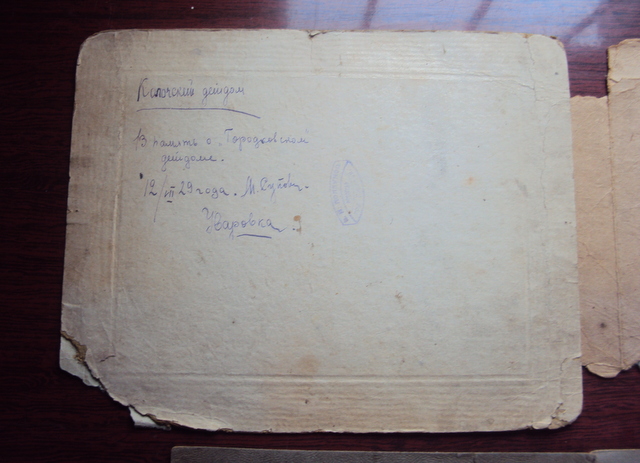 Колочский дейдом
В память о "Городковском"
дейдоме.
12/VII 29 года.
Уваровка.